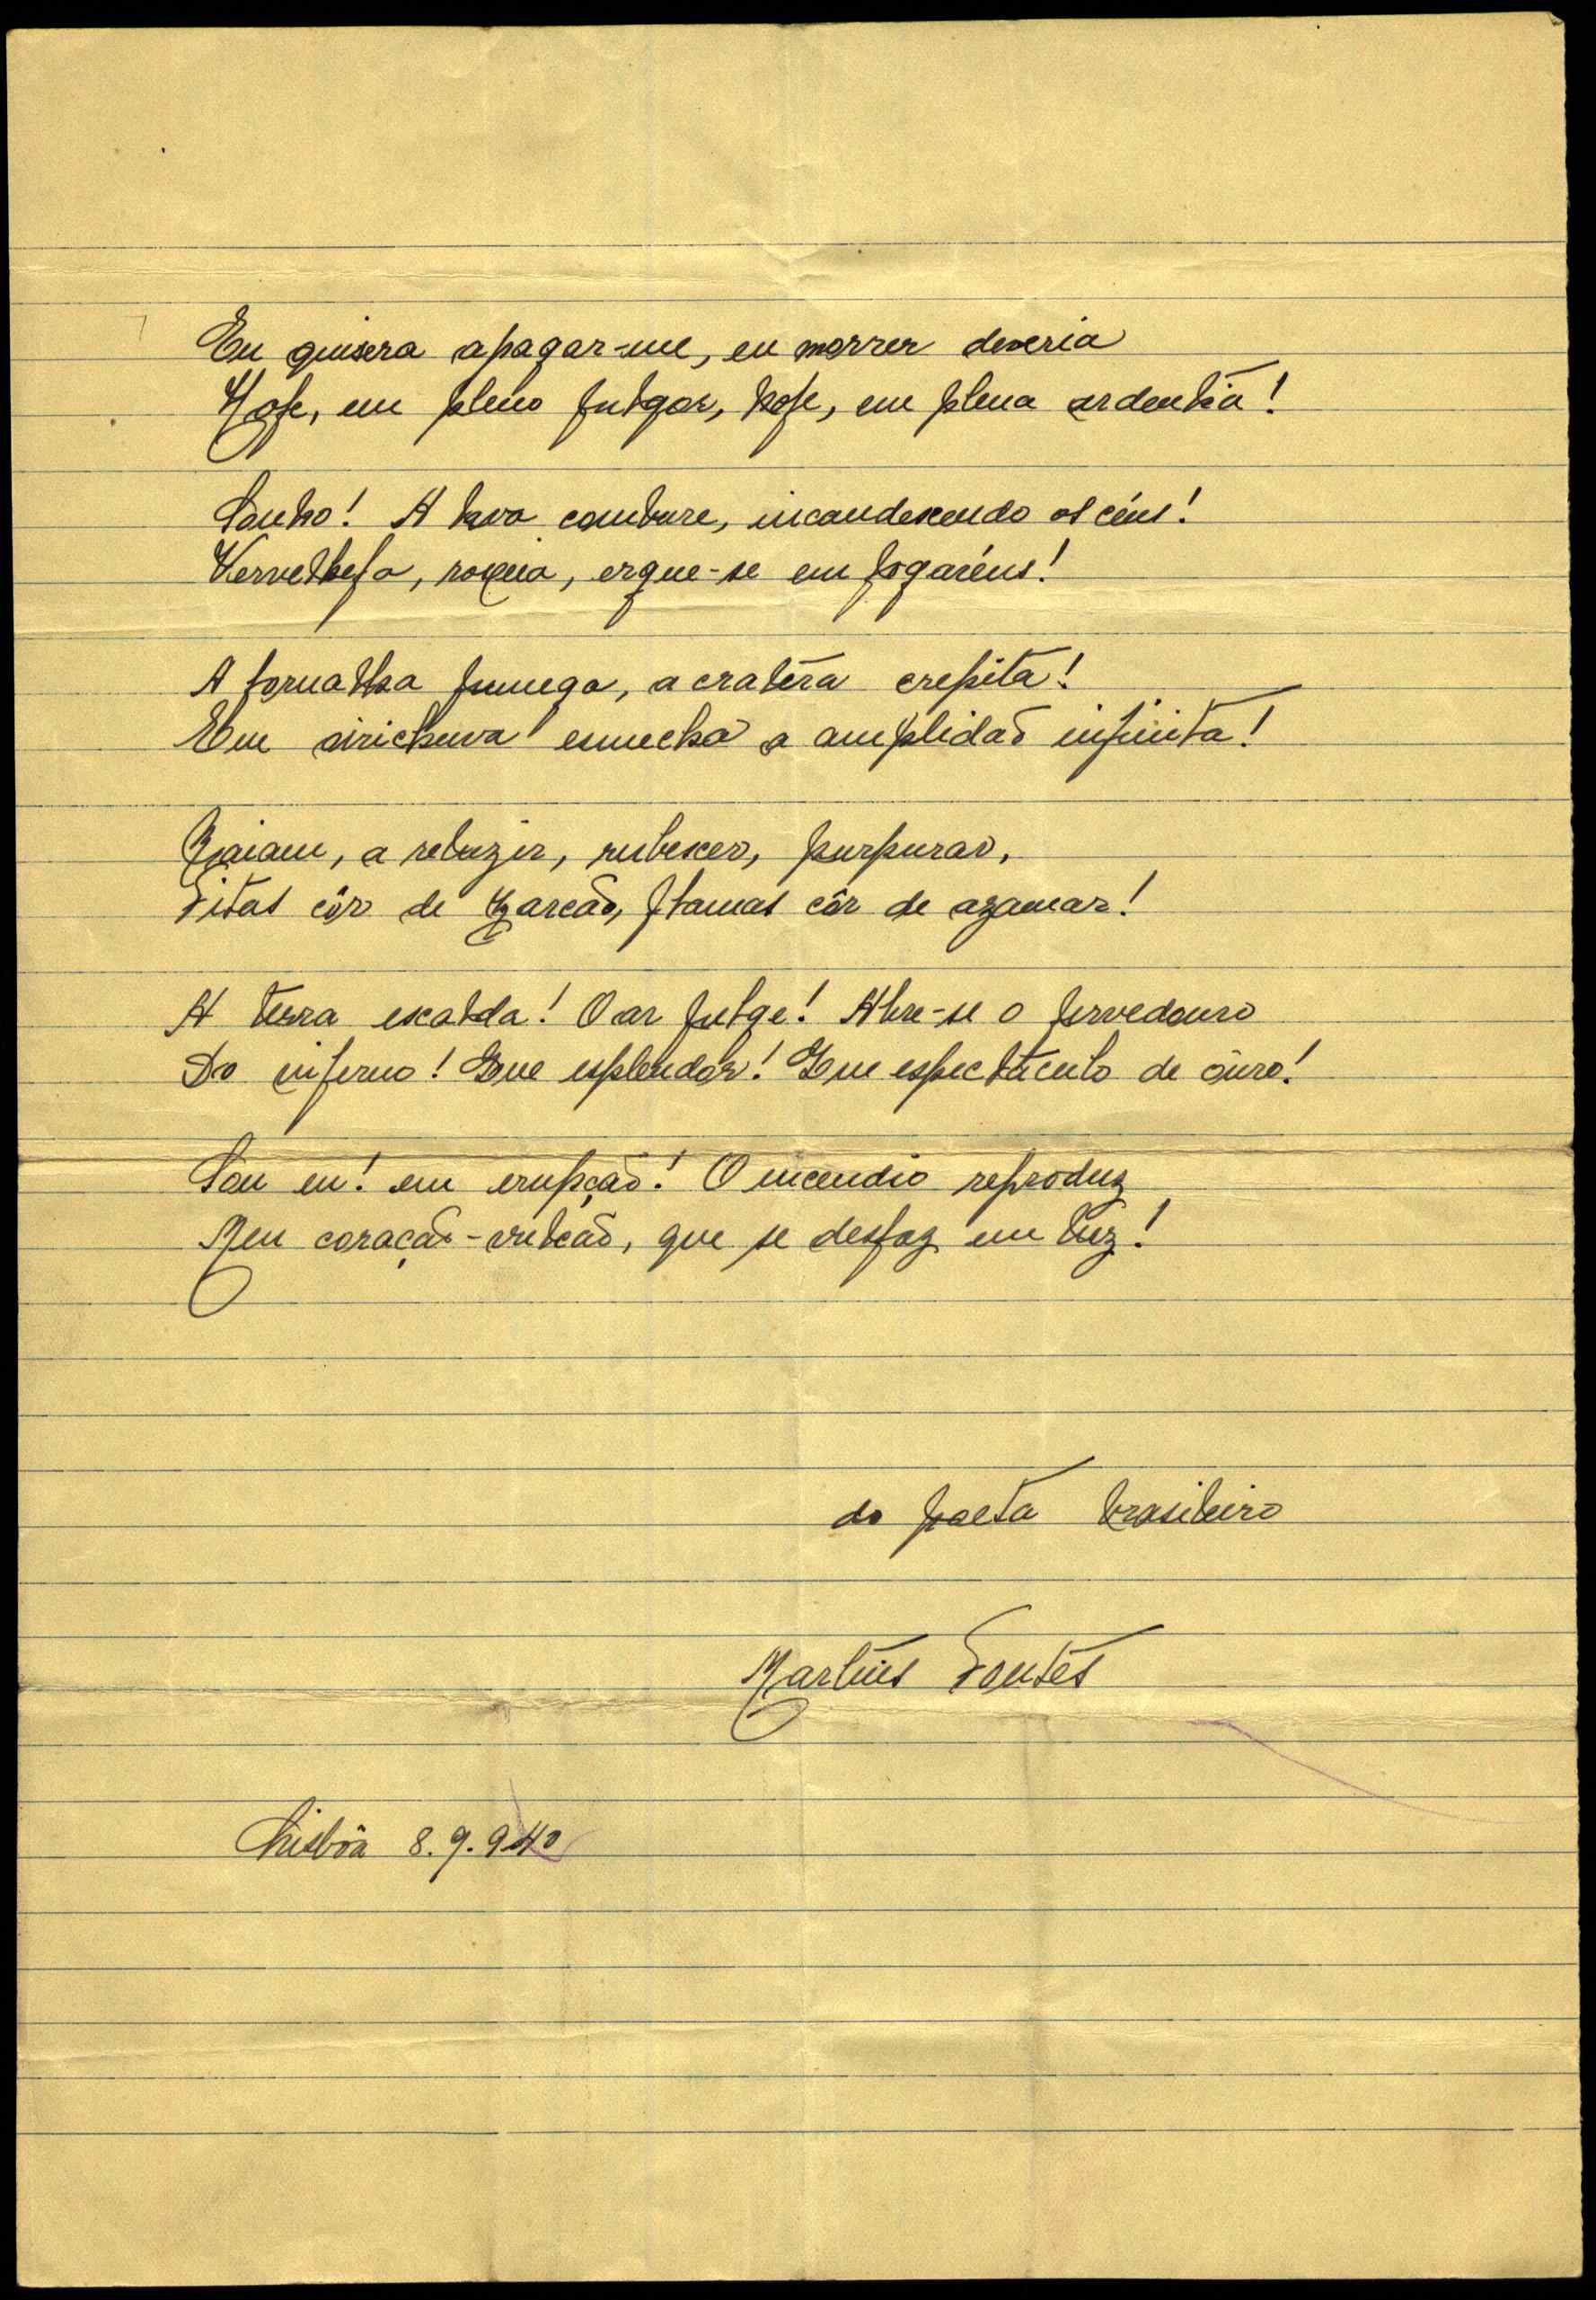 Eu quisera apagar-me, eu morrer deveria
Hoje, em pleno fulgor, hoje, em plena ardentia!
Sonho! A lava combure, incandescendo os céus!
Vermelheja, roxeia, ergue-se em fogaréus!
A fornalha fumega, a cratéra crepita!
Em airichuva esmecha a amplidão infinita!
Raiam, a reluzir, rubescer, purpurar,
Fitas côr de zarcão, flamas côr de azamar!
A terra escalda! O ar fulge! Abre-se o fervedouro
Do inferno! Que esplendôr! Que espectáculo de ouro!
Sou eu! em erupção! O incendio reproduz
Meu coração-vulcão, que se desfaz em luz!
do poeta brasileiro
Martins Fontes
Lisbôa 8.9.940